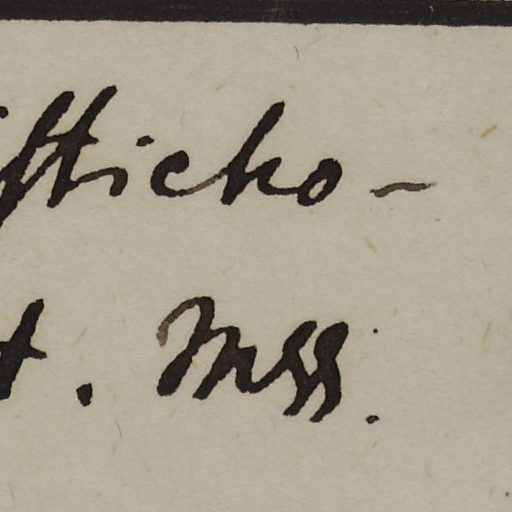 isticho-
t. Mss.